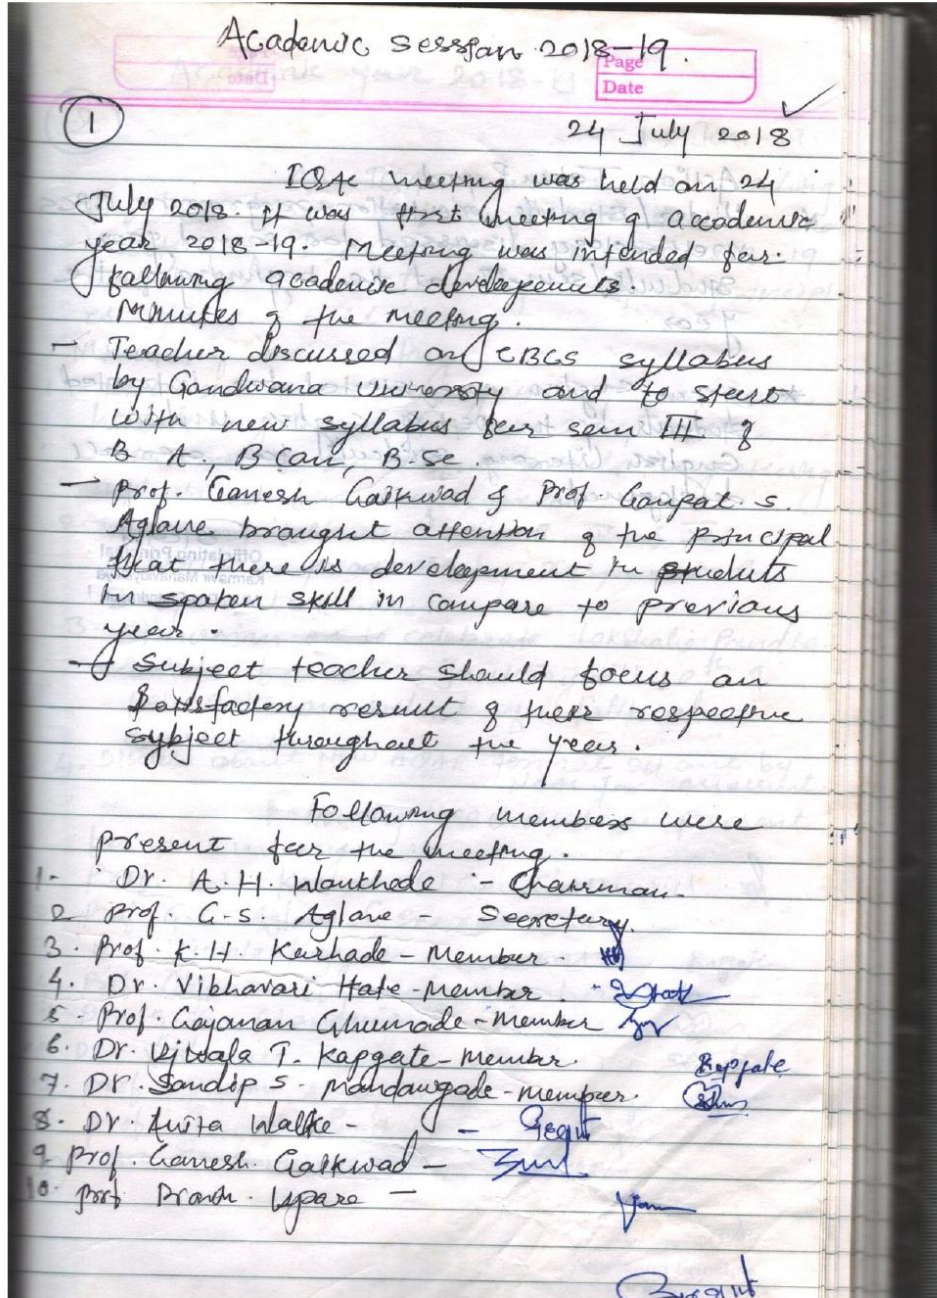 Academic session 2018-19.
Page
Date
1
24 July 2018
IQAC meeting was held on 24
July 2018. It was first meeting of accademic
year 2018-19. Meeting was intended for
following academic developments.
Minutes of the meeting.
- Teacher discussed on CBCS syllabus
by Gondwana University and to start
with new syllabus for sem III of
B A, B Com, B.Sc.
- Prof. Ganesh Gaikwad & Prof. Ganpat. S.
Aglave brought attention of the principal
that there is development in students
in spoken skill in compare to previous
year.
- Subject teacher should focus on
satisfactory result of their respective
subject throughout the year.
Following members were
present for the meeting.
1. Dr. A. H. Wankhede - Chairman.
2 Prof. G.S. Aglave - Secretary.
3. Prof. K.H. Karhade - Member.
4. Dr. Vibhavari Hate - Member.
5. Prof. Gajanan Ghumade - member
6. Dr. Ujwala T. Kapgate - Member.
Kapgate
7. Dr. Sandip S. Mandavgade - member.
8. Dr. Anita Walke -
9 Prof. Ganesh. Gaikwad -
10. Prof